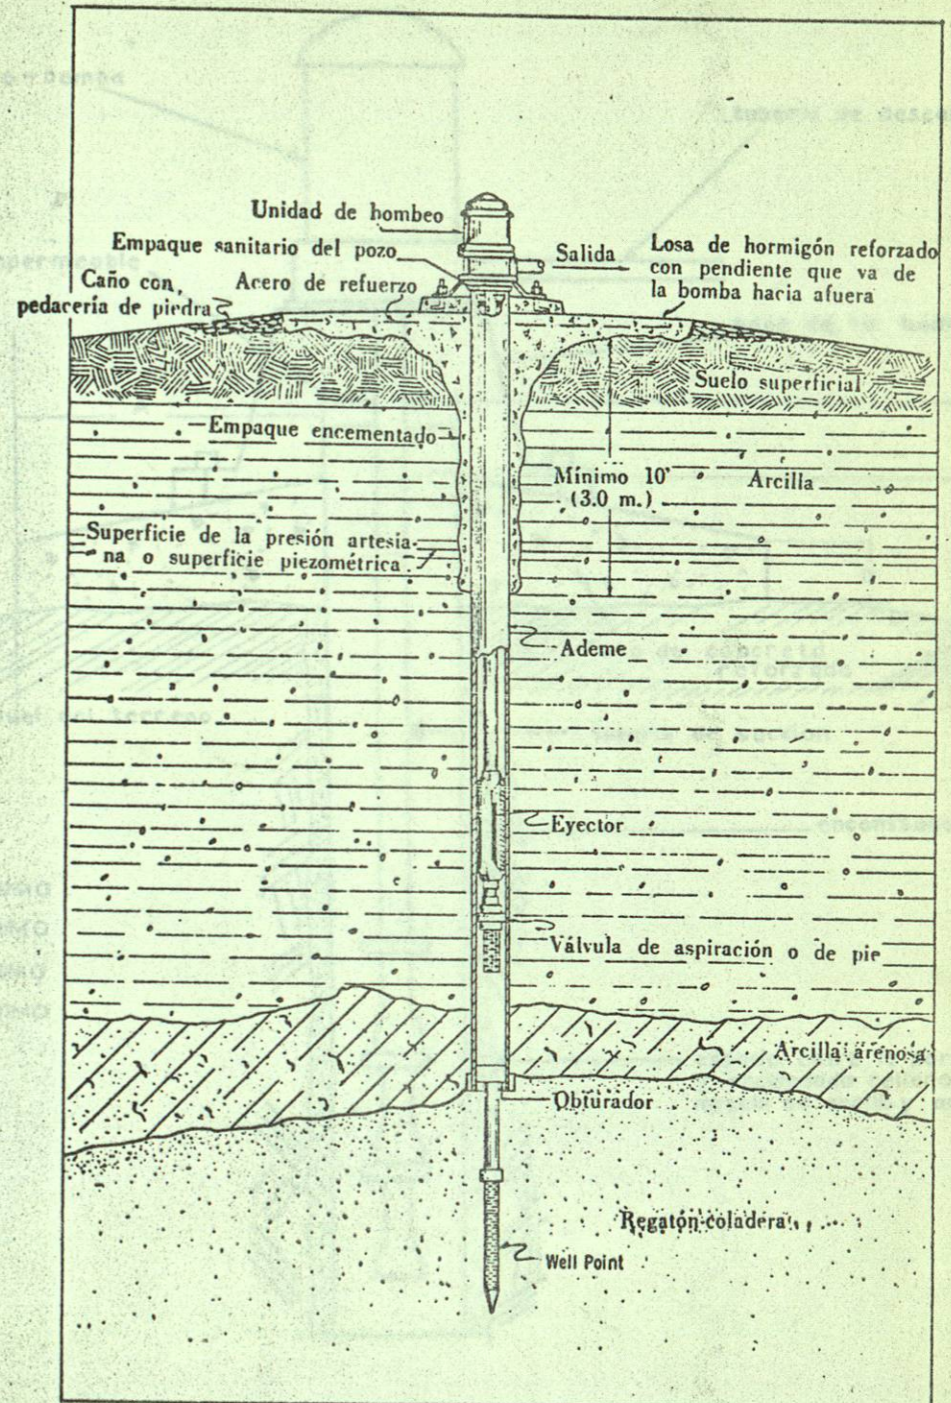 Unidad de bombeo
Empaque sanitario del pozo
Salida
Losa de hormigón reforzado
con pendiente que va de
la bomba hacia afuera
Caño con,
pedacería de piedra
Acero de refuerzo
Suelo superficial
Empaque encementado
Mínimo 10'
(3.0 m.)
Arcilla
Superficie de la presión artesia-
na o superficie piezométrica
Ademe
Eyector
Válvula de aspiración o de pie
Arcilla arenosa
Obturador
Regatón-coladera
Well Point